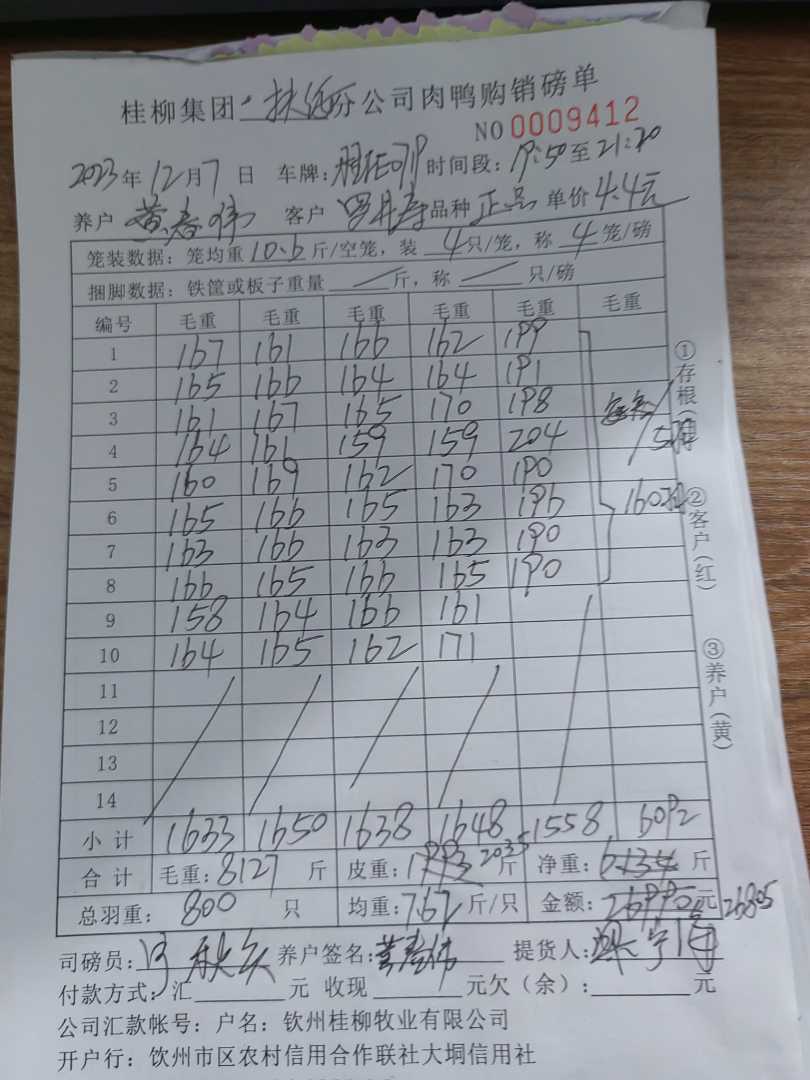 桂柳集团 扶绥分公司肉鸭购销磅单
NO 0009412
2023年12月7日 车牌: 时间段:19:50至21:20
养户 黄春伟 客户 罗升寿 品种 正品 单价 4.4元
笼装数据: 笼均重 10.6 斤/空笼, 装 4 只/笼, 称 4 笼/磅
捆脚数据: 铁筐或板子重量 斤, 称 只/磅
编号 毛重 毛重 毛重 毛重 毛重 毛重
1 167 161 166 162 199
2 165 166 164 164 191
3 161 167 165 170 198
4 164 161 159 159 204
5 160 169 162 170 190
6 165 166 165 163 196 160只
7 163 166 163 163 190
8 166 165 166 165 190
9 158 164 166 161
10 164 165 162 171
11
12
13
14
小计 1633 1650 1638 1648 1558 6092
合计 毛重: 8127 斤 皮重: 2035 斤 净重: 斤
总羽重: 800 只 均重: 7.62 斤/只 金额: 元 26805
司磅员: 养户签名: 黄春伟 提货人:
付款方式: 汇 元 收现 元欠(余): 元
公司汇款帐号: 户名: 钦州桂柳牧业有限公司
开户行: 钦州市区农村信用合作联社大垌信用社
①存根(
②客户(红)
③养户(黄)